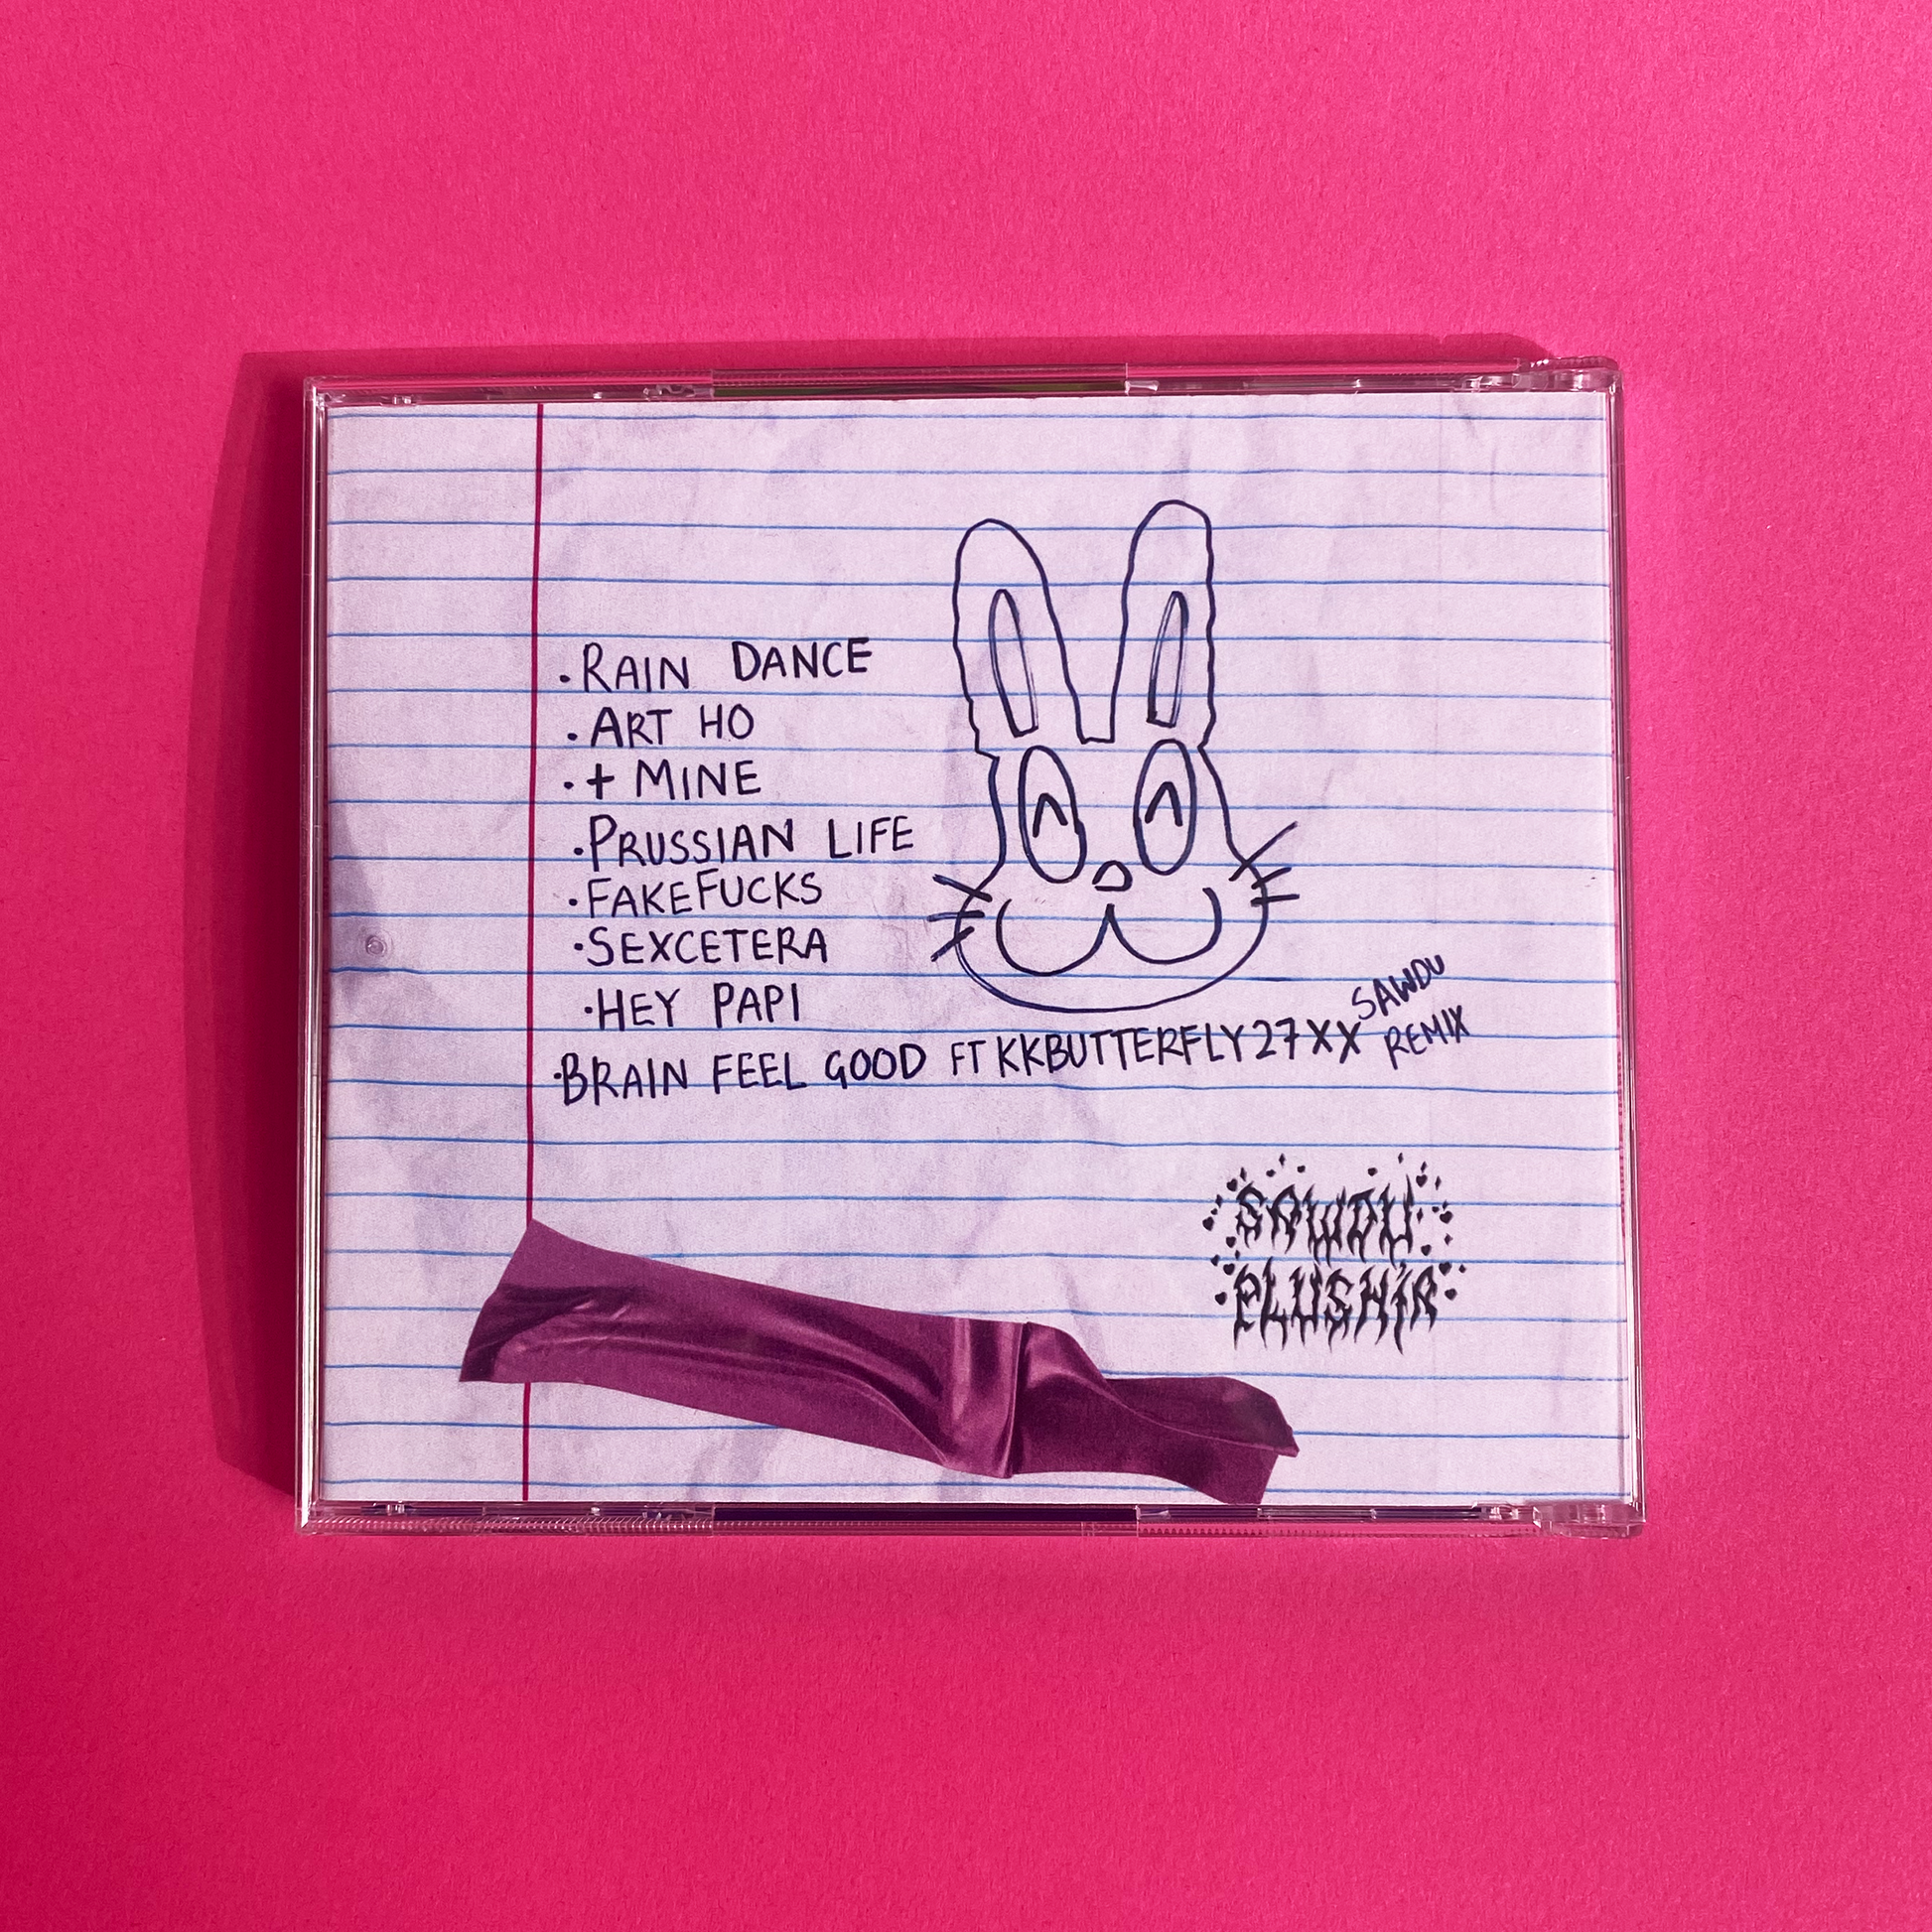 ·RAIN DANCE
·ART HO
·+ MINE
·PRUSSIAN LIFE
·FAKEFUCKS
·SEXCETERA
·HEY PAPI
·BRAIN FEEL GOOD FT KKBUTTERFLY27XX SAWDU REMIX
SAWDU
PLUSHIR